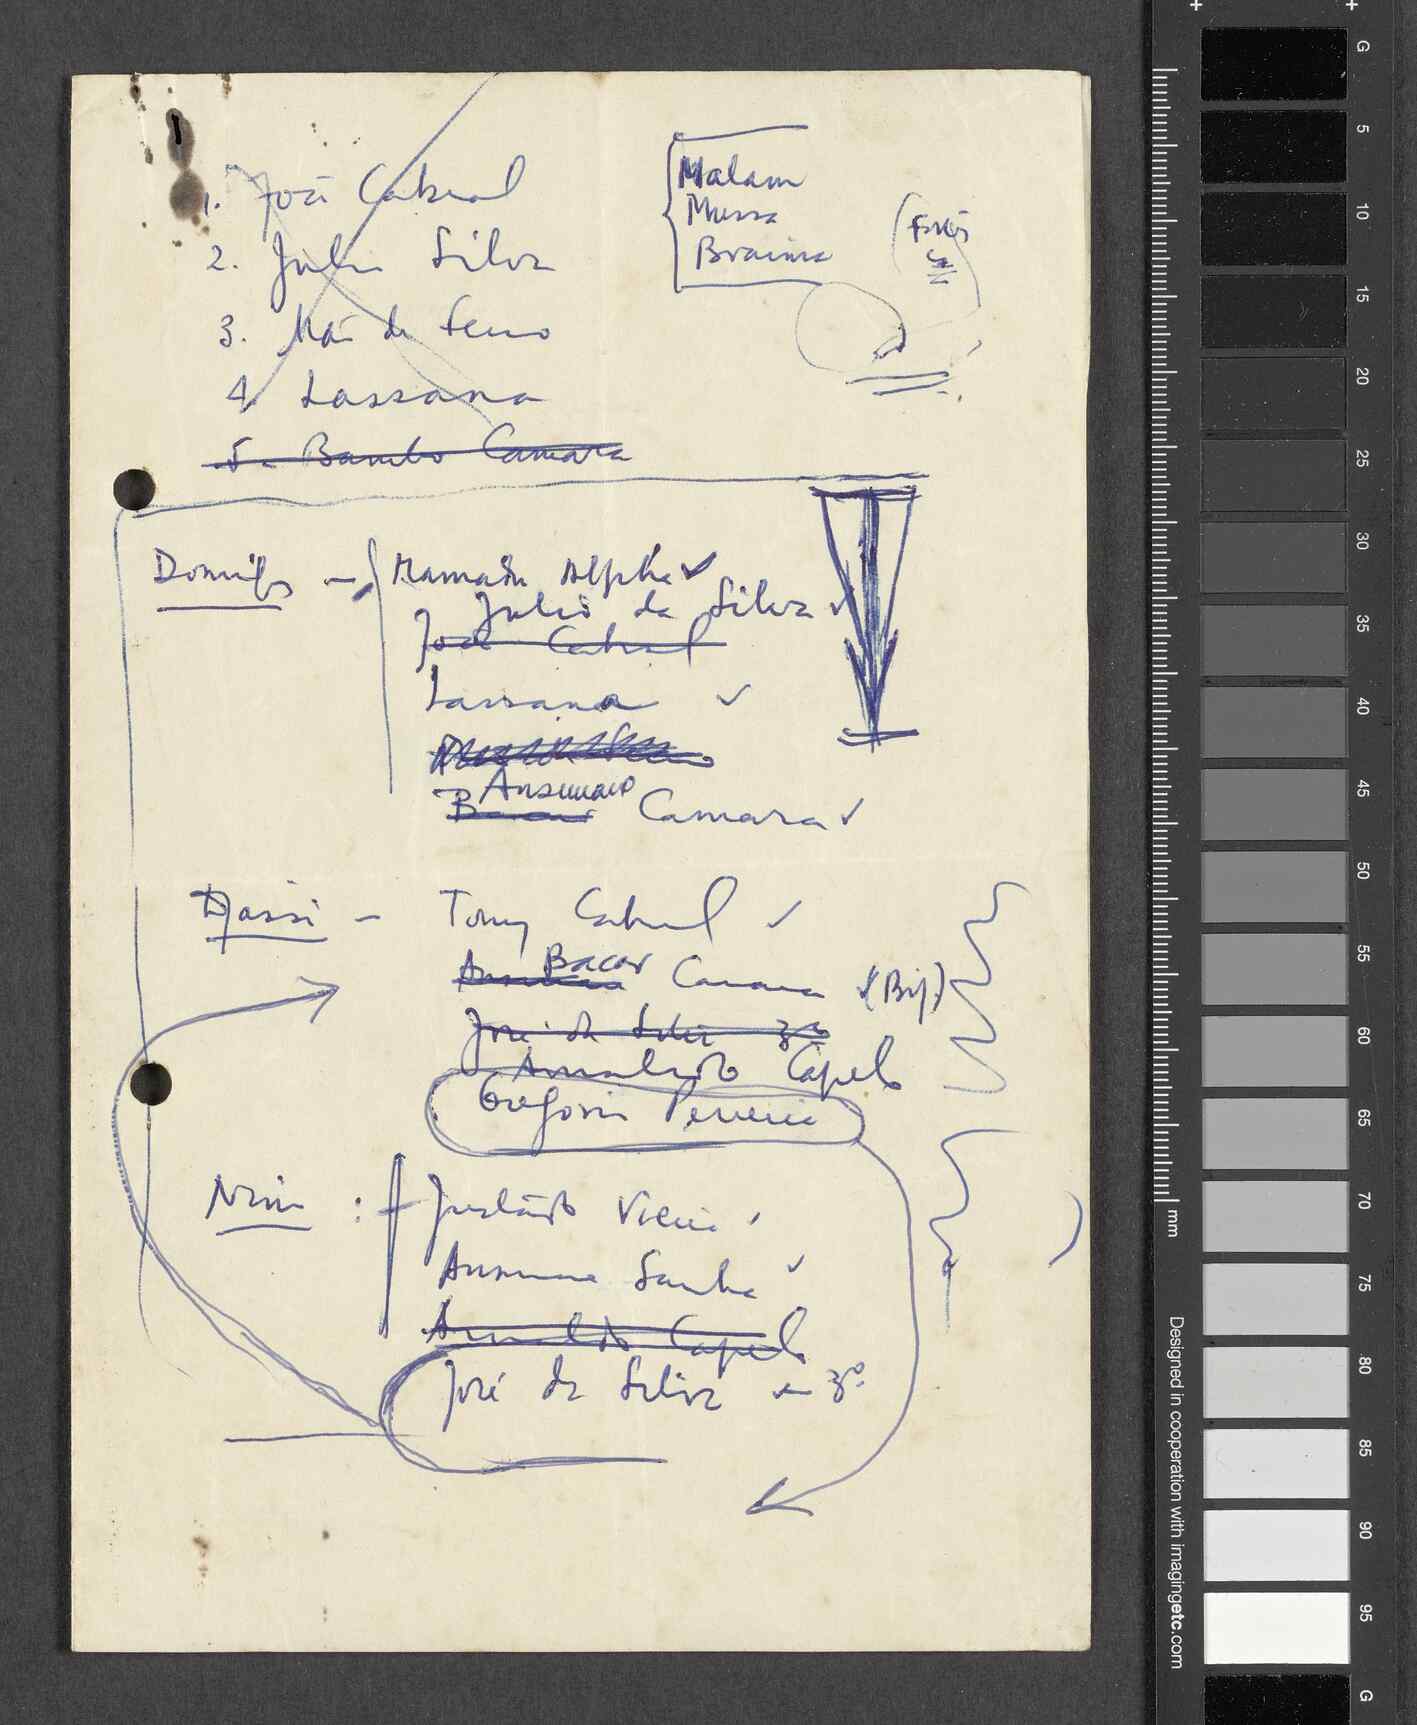 1. José Cabral
2. Julio Silva
3.
4. Lassana
5. Bambo Camara
Malam
Mussa
Braima
Domingos - Mamadu Alpha ✓
Julio da Silva ✓
José Cabral
Lassana ✓
Ansumane
Bacar Camara ✓
Djassi - Tony Cabral ✓
Bacar
Camara ✓ (Bij.)
José da Silva 3º
Arnaldo Capelo
Gregorio Perreira
Nino :
Justado Vieira ✓
Ansumane Sanha ✓
Arnaldo Capelo
José da Silva - 3º
G
5
10
15
20
25
30
35
40
45
50
55
60
65
70
75
80
85
90
95
G
mm
Designed in cooperation with imagingetc.com